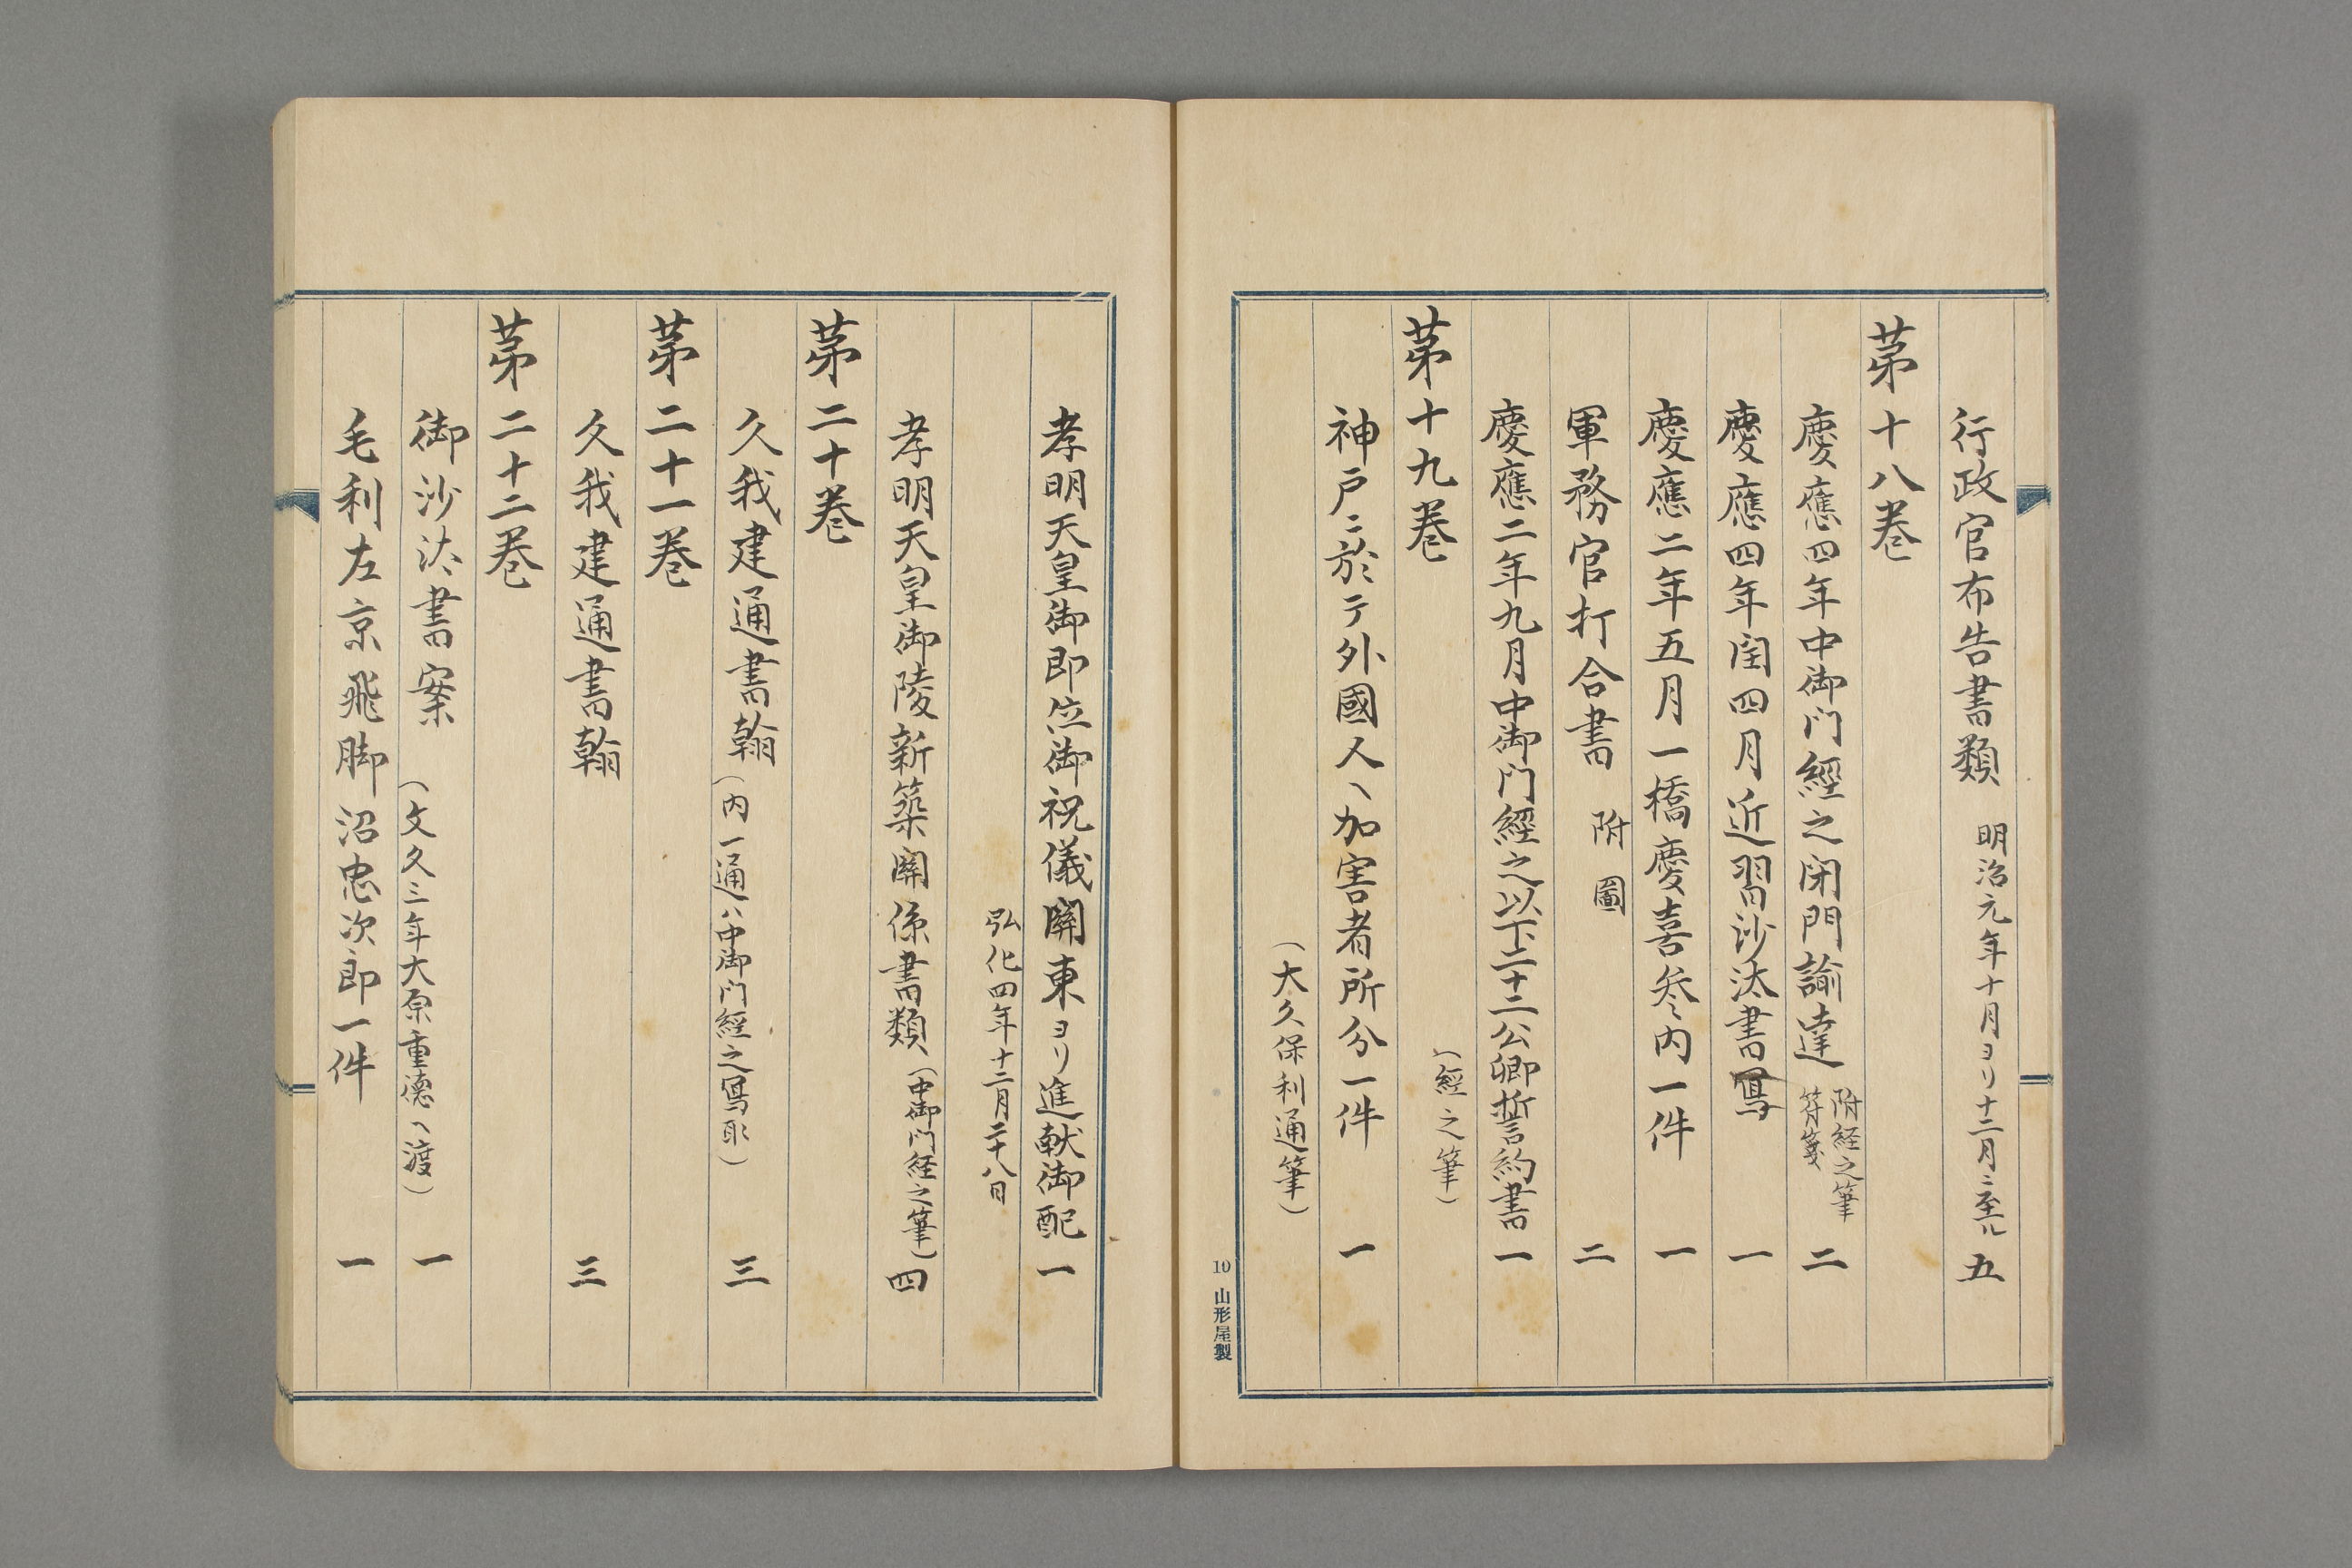 行政官布告書類 明治元年十月ヨリ十二月ニ至ル 五
第十八巻
慶應四年中御门經之閉門諭達 附経之筆 二
符箋
慶應四年閏四月近習沙汰書寫 一
慶應二年五月一橋慶喜参内一件 一
軍務官打合書 附圖 二
慶應二年九月中御门經之以下二十二公卿誓約書 一
(經之筆)
第十九巻
神戸ニ於テ外國人ヘ加害者所分一件 一
(大久保利通筆)
10 山形屋製
孝明天皇御即位御祝儀關東ヨリ進献御配 一
弘化四年十二月二十八日
孝明天皇御陵新築關係書類(中御门経之筆) 四
第二十巻
久我建通書翰(内一通ハ中御门經之寫取) 三
第二十一巻
久我建通書翰 三
第二十二巻
御沙汰書案 (文久三年大原重徳ヘ渡) 一
毛利左京飛脚沼忠次郎一件 一